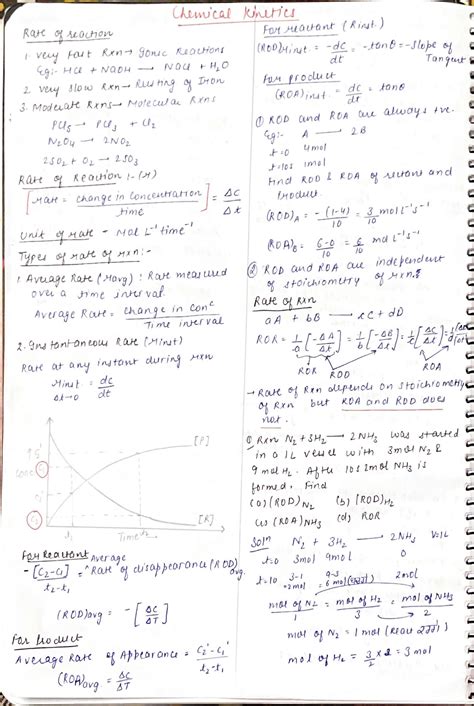 Chemical Kinetics
Rate of reaction
1. Very Fast Rxn → Ionic Reactions
Eg:- HCl + NaOH → NaCl + H2O
2. Very Slow Rxn → Rusting of Iron
3. Moderate Rxns → Molecular Rxns
PCl5 → PCl3 + Cl2
N2O4 → 2NO2
2SO2 + O2 → 2SO3
Rate of Reaction :- (r)
[rate = change in concentration / time] = ΔC/Δt
Unit of rate - Mol L⁻¹ time⁻¹
Types of rate of rxn:-
1. Average Rate (ravg) : Rate measured
over a time interval
Average Rate = change in Conc / Time interval
2. Instantaneous Rate (rinst)
Rate at any instant during rxn
rinst = dc/dt
Δt→0
[P]
conc
[R]
t1 Time t2
For Reactant
Average
-[C2-C1]/t2-t1 = Rate of disappearance (ROD)avg.
(ROD)avg = -[ΔC/ΔT]
For product
Average Rate of Appearance = C2'-C1'/t2-t1
(ROA)avg = ΔC/ΔT
For reactant (Rinst.)
(ROD)inst = -dc/dt = -tanθ = -Slope of
Tangent
For product
(ROA)inst = dc/dt = tanθ
① ROD and ROA are always +ve.
Eg:- A → 2B
t=0 4mol
t=10s 1mol
Find ROD & ROA of reactant and
Product.
(ROD)A = -(1-4)/10 = 3/10 mol L⁻¹s⁻¹
(ROA)B = 6-0/10 = 6/10 mol L⁻¹s⁻¹
② ROD and ROA are independent
of stoichiometry of rxn.
Rate of Rxn
aA + bB → cC + dD
ROR = 1/a[-ΔA/Δt] = 1/b[-ΔB/Δt] = 1/c[ΔC/Δt] = 1/d
ROR ROD ROA
→ Rate of Rxn depends on Stoichiometry
of Rxn but ROA and ROD does
not.
Rxn N2 + 3H2 → 2NH3 was started
in a 1L vessel with 3mol N2 &
9mol H2. After 10s 2mol NH3 is
formed. Find
(a) (ROD)N2 (b) (ROD)H2
(c) (ROA)NH3 (d) ROR
Soln N2 + 3H2 → 2NH3 V=1L
t=0 3mol 9mol 0
t=10 3-1 9-3 2mol
=2mol =6mol
mol of N2/1 = mol of H2/3 = mol of NH3/2
mol of N2 = 1mol
mol of H2 = 3/2 × 2 = 3mol